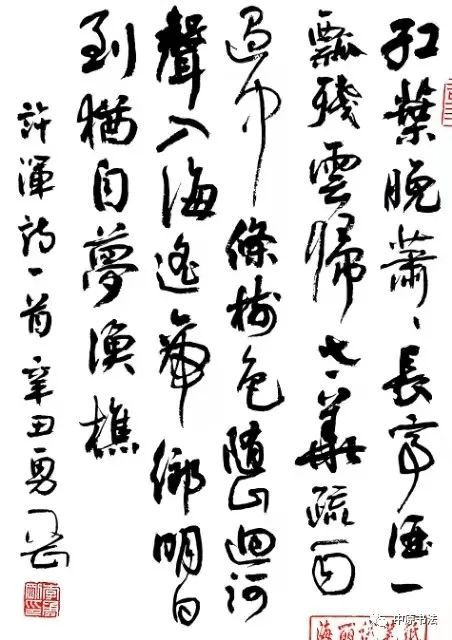 红葉晚蕭〻長亭酒一
瓢殘雲歸太華疏雨
過中條樹色隨山迴河
聲入海遙帝鄉明日
到猶自夢漁樵
許渾詩一首辛丑勇
中原书法